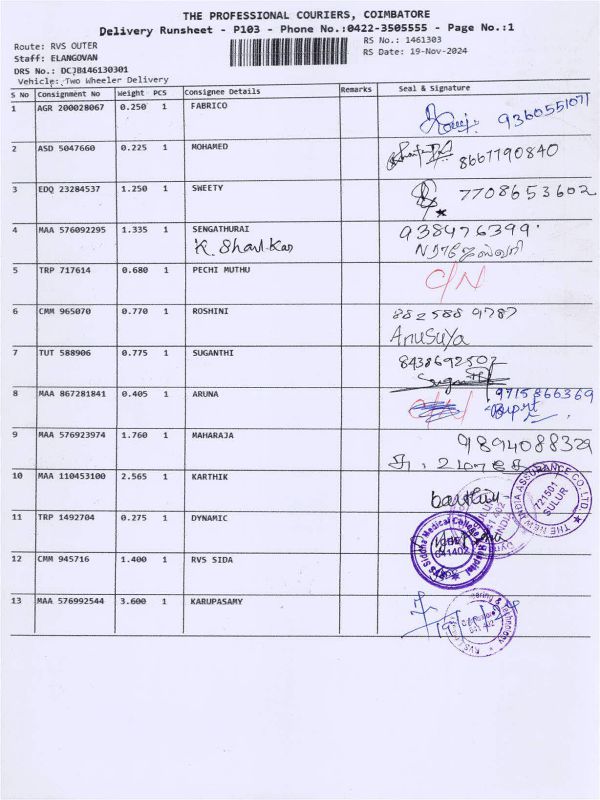 THE PROFESSIONAL COURIERS, COIMBATORE
Delivery Runsheet - P103 - Phone No.:0422-3505555 - Page No.:1
Route: RVS OUTER
RS No.: 1461303
Staff: ELANGOVAN
RS Date: 19-Nov-2024
DRS No.: DCJB146130301
Vehicle: Two Wheeler Delivery
S No Consignment No Weight PCS Consignee Details Remarks Seal & Signature
1 AGR 200028067 0.250 1 FABRICO 9360551071
2 ASD 5047660 0.225 1 MOHAMED 8667790840
3 EDQ 23284537 1.250 1 SWEETY 7708653602
4 MAA 576092295 1.335 1 SENGATHURAI 938476399
K. Shankar
5 TRP 717614 0.680 1 PECHI MUTHU C/N
6 CMM 965070 0.770 1 ROSHINI 882588 9787
Anusuya
7 TUT 588906 0.775 1 SUGANTHI 8438692507
8 MAA 867281841 0.405 1 ARUNA 9715866369
9 MAA 576923974 1.760 1 MAHARAJA 9894088329
10 MAA 110453100 2.565 1 KARTHIK
THE NEW INDIA ASSURANCE CO. LTD.
721501
SULUR
11 TRP 1492704 0.275 1 DYNAMIC
RVS Siddha Medical College & Hospital
641402
12 CMM 945716 1.400 1 RVS SIDA
13 MAA 576992544 3.600 1 KARUPASAMY